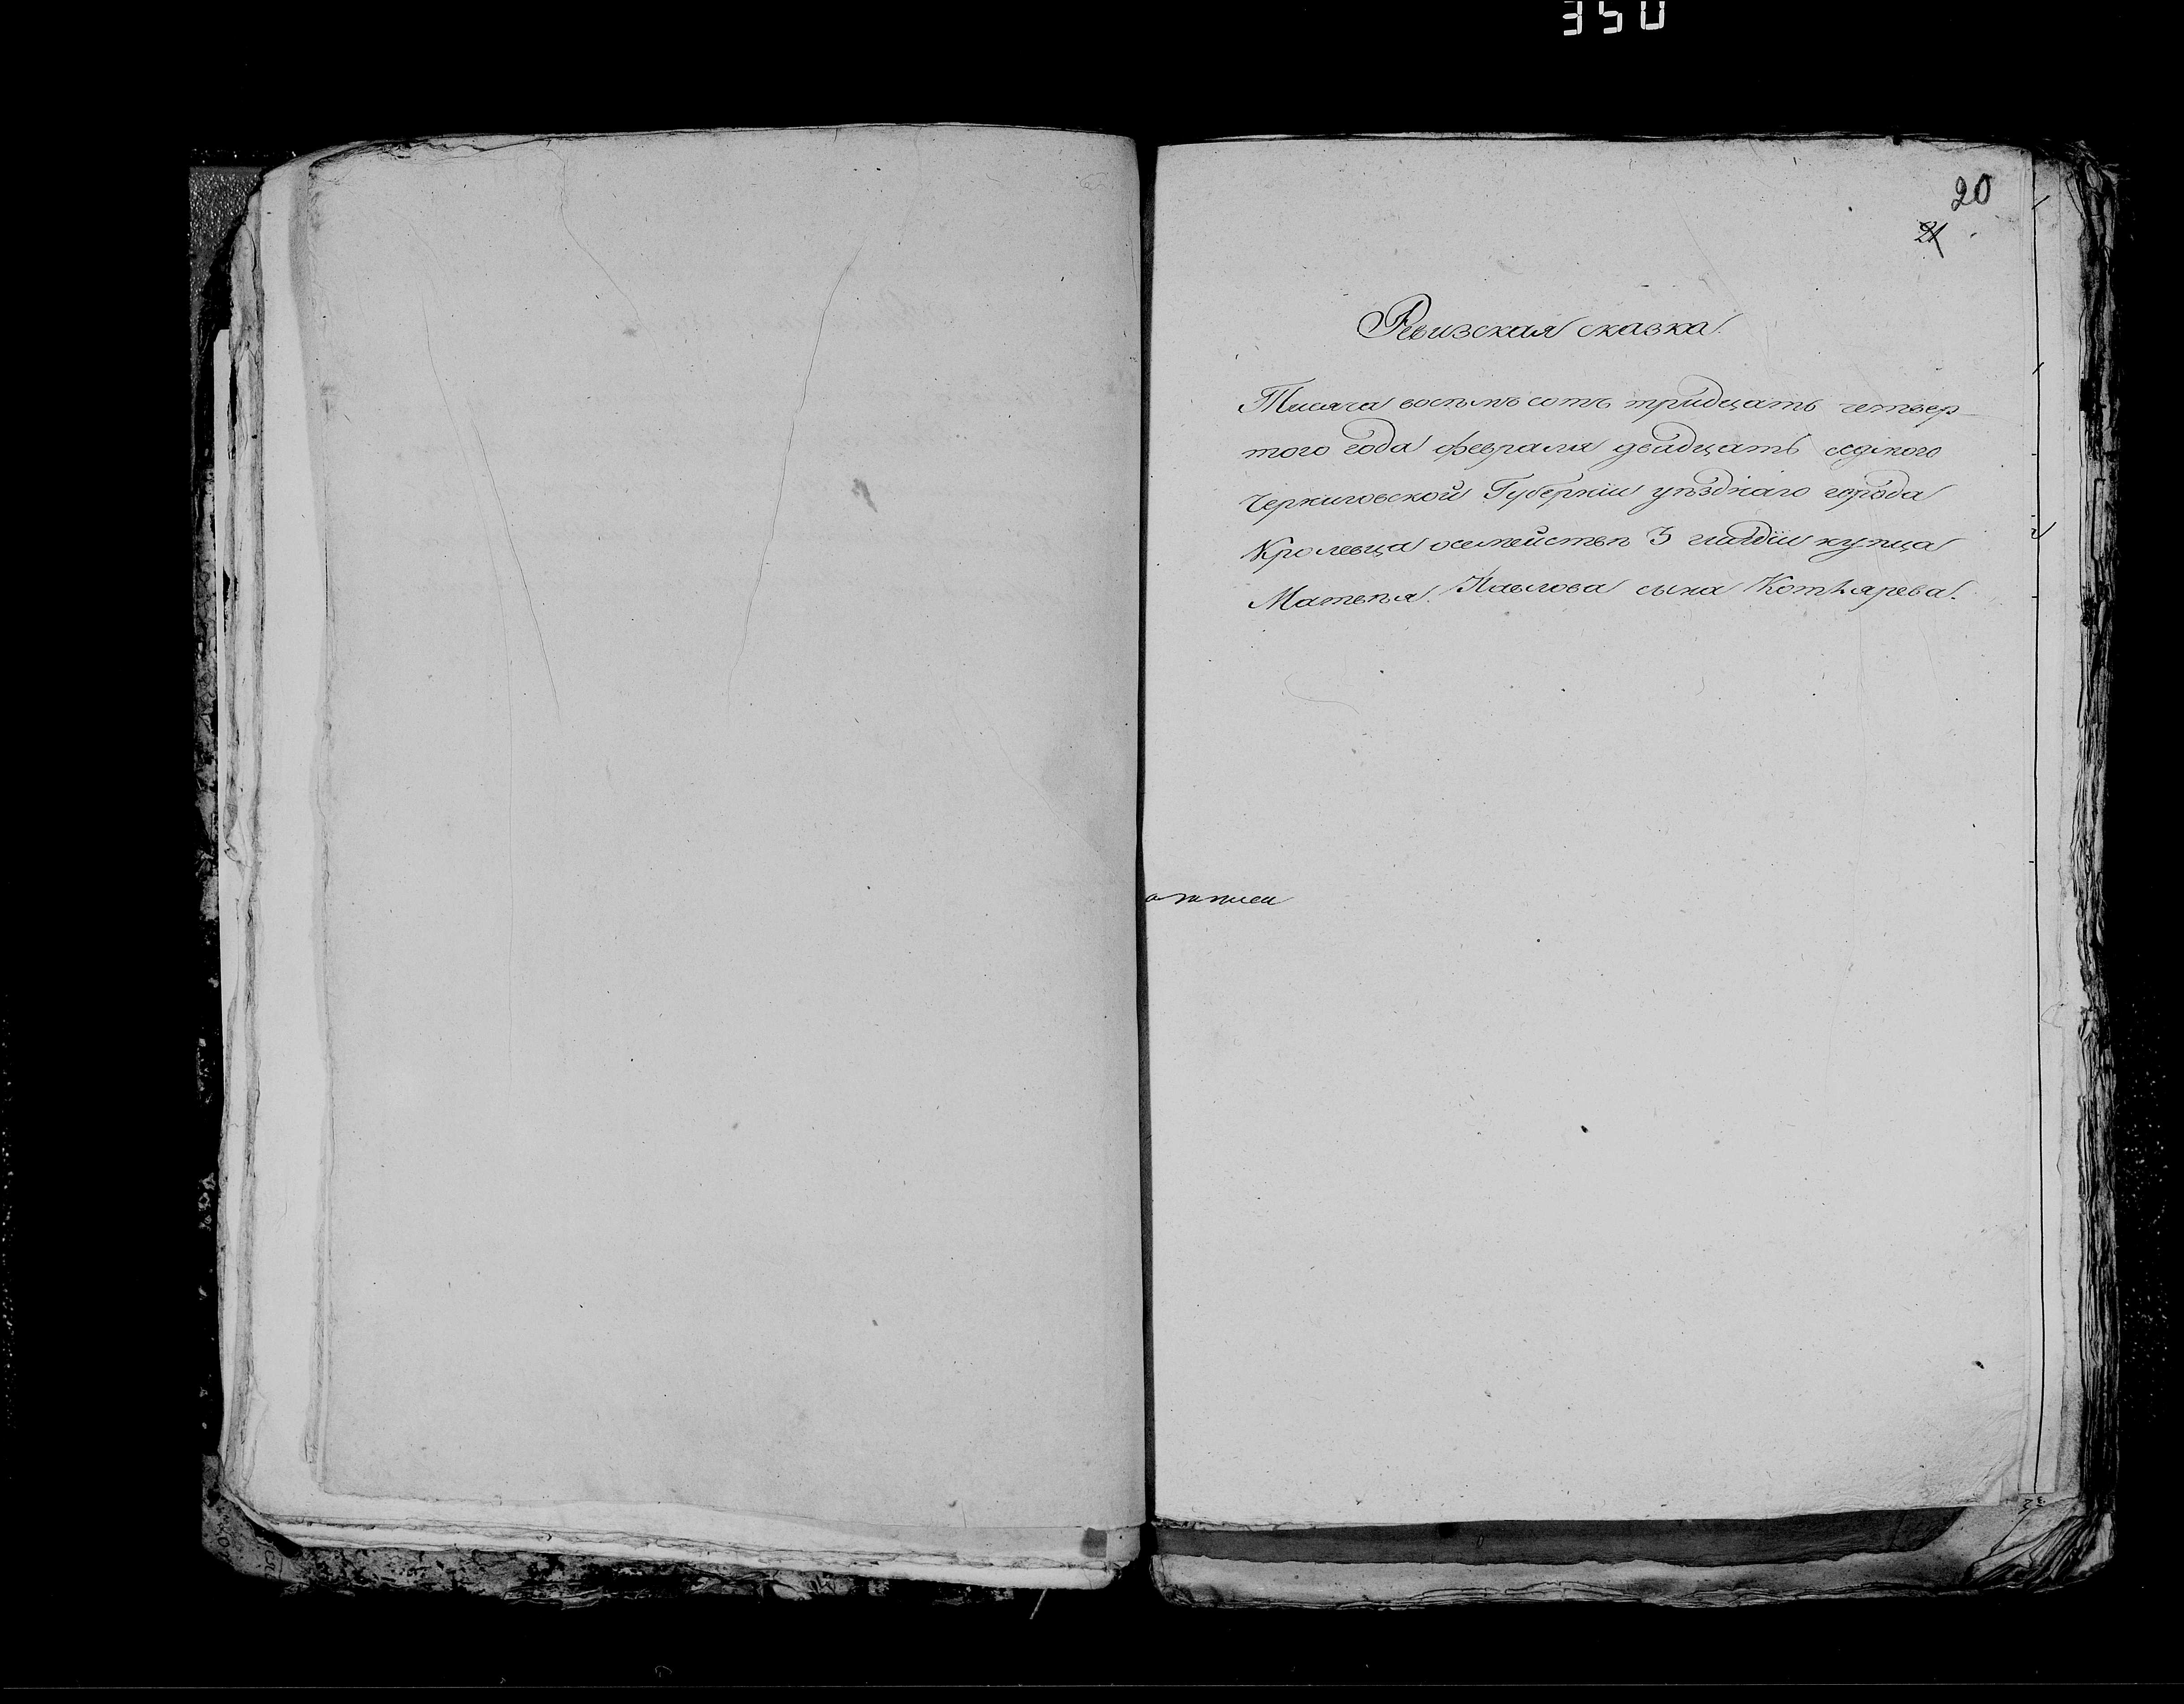 350
20
21
Ревизская сказка.
Тисяча восемь сотъ тридцать четвер
того года февраля двадцать седмого
Черниговской Губернiи уѣзднаго города
Кролевца осемействѣ 3 гилдiи купца
Матвѣя Павлова сына Котлярева.